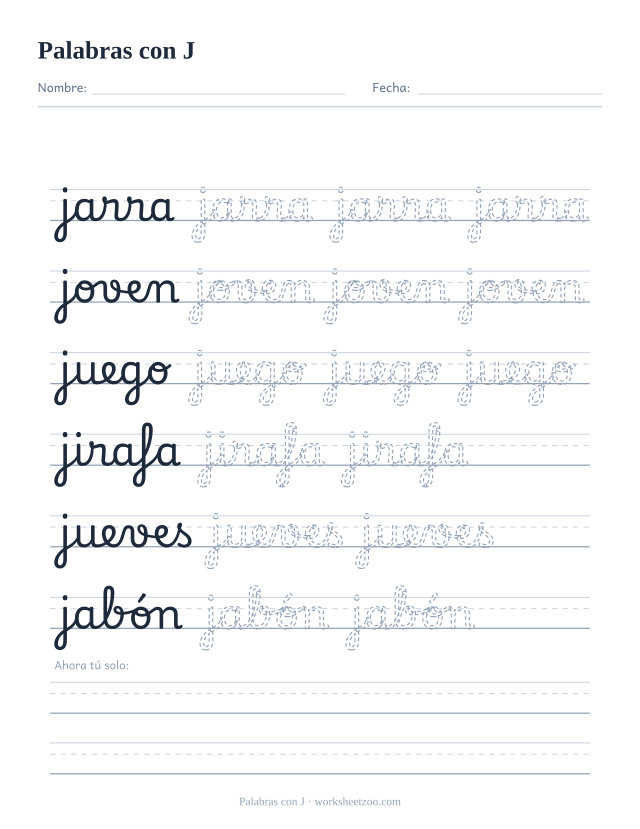 Palabras con J
Nombre: Fecha:
jarra jarra jarra jarra
joven joven joven joven
juego juego juego juego
jirafa jirafa jirafa
jueves jueves jueves
jabón jabón jabón
Ahora tú solo:
Palabras con J · worksheetzoo.com